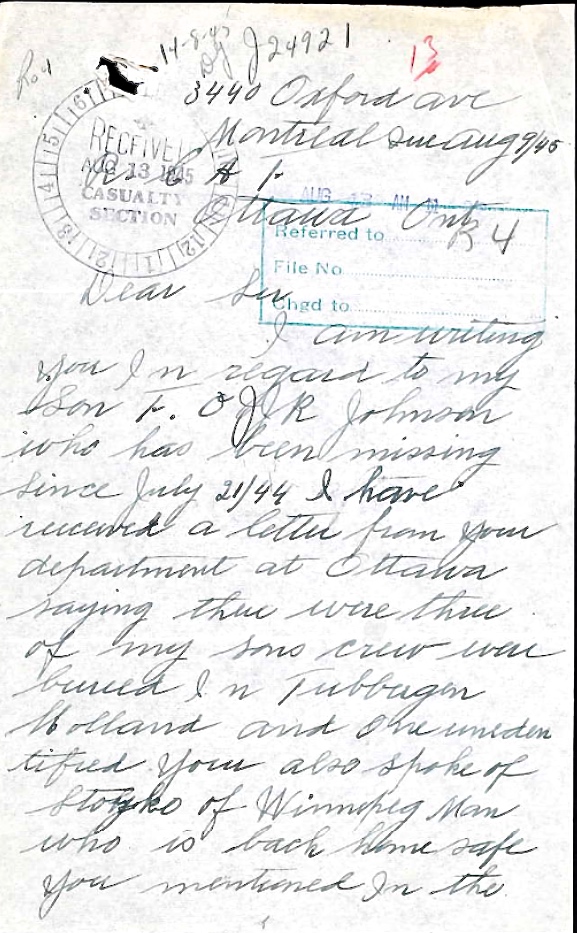 14-8-45
J24921
13
3440 Oxford ave
Montreal Que Aug 9/45
RECEIVED
AUG 13 1945
CASUALTY
SECTION
R C A F
AUG 13 AM
Ottawa Ont
Referred to R4
File No
Chgd to
Dear Sir
I am writing
you In regard to my
Son F. O J R Johnson
who has been missing
since July 21/44 I have
received a letter from your
department at Ottawa
saying there were three
of my sons crew were
buried In Tubbergen
Holland and One uneden
tified Your also spoke of
of Winnipeg Man
who is back home safe
you mentioned In the